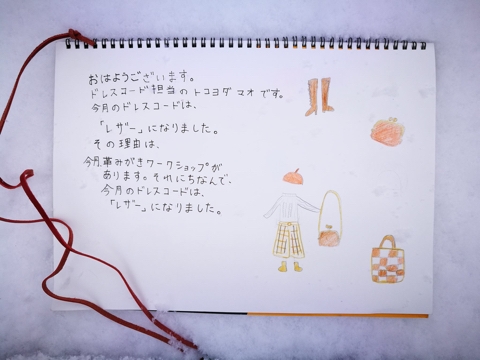 おはようございます。
ドレスコード担当のトコヨダマオです。
今月のドレスコードは、
「レザー」になりました。
その理由は、
今月、革みがきワークショップが
あります。それにちなんで、
今月のドレスコードは、
「レザー」になりました。